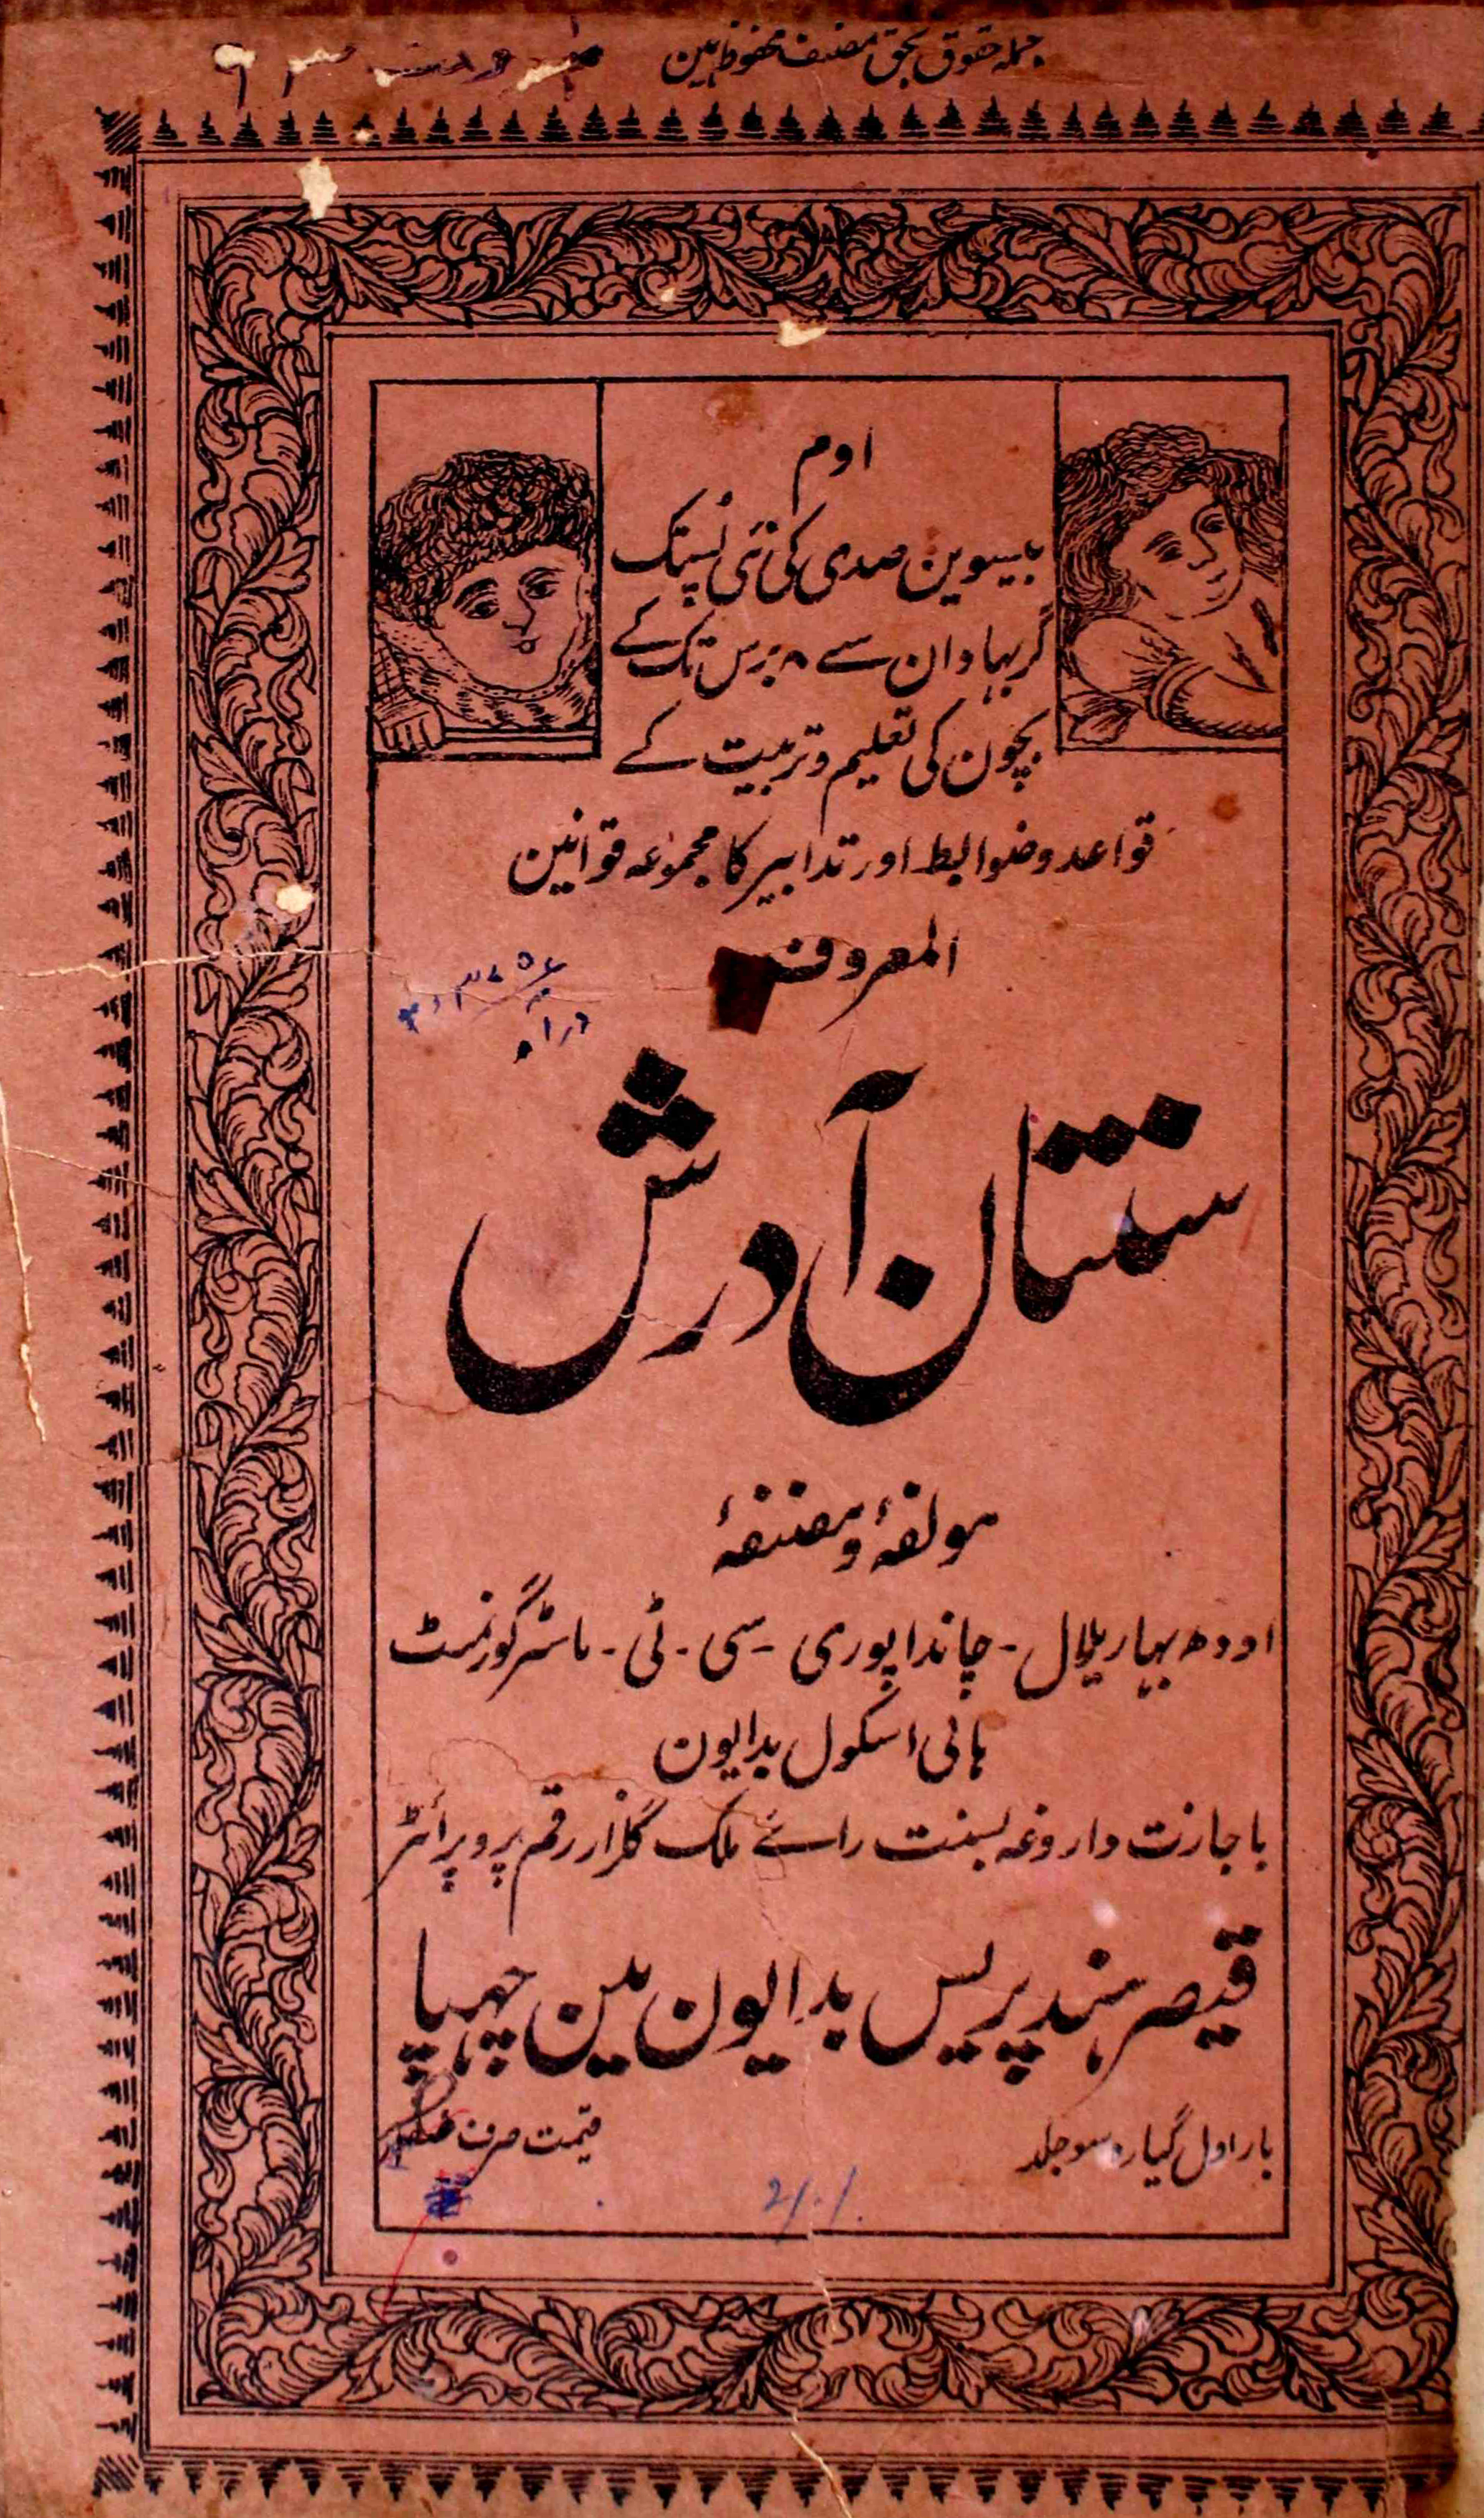 جملہ حقوق بحق مصنف محفوظ ہین
اوم
بیسوین صدی کی نئی پستک
گربھادان سے ۸ برس تک کے
بچون کی تعلیم و تربیت کے
قواعد و ضوابط اور تدابیر کا مجموعہ قوانین
المعروف
سنتان آدرش
مولفۂ و مصنفۂ
اودھ بہاریلال - چاندا پوری - سی - ٹی - ماسٹر گورنمنٹ
ہائی اسکول بدایون
باجازت داروغہ بسنت رائے ملک گلزار رقم پروپرائٹر
قیصر ہند پریس بدایون مین چھپا
بار اول گیارہ سو جلد
قیمت صرف